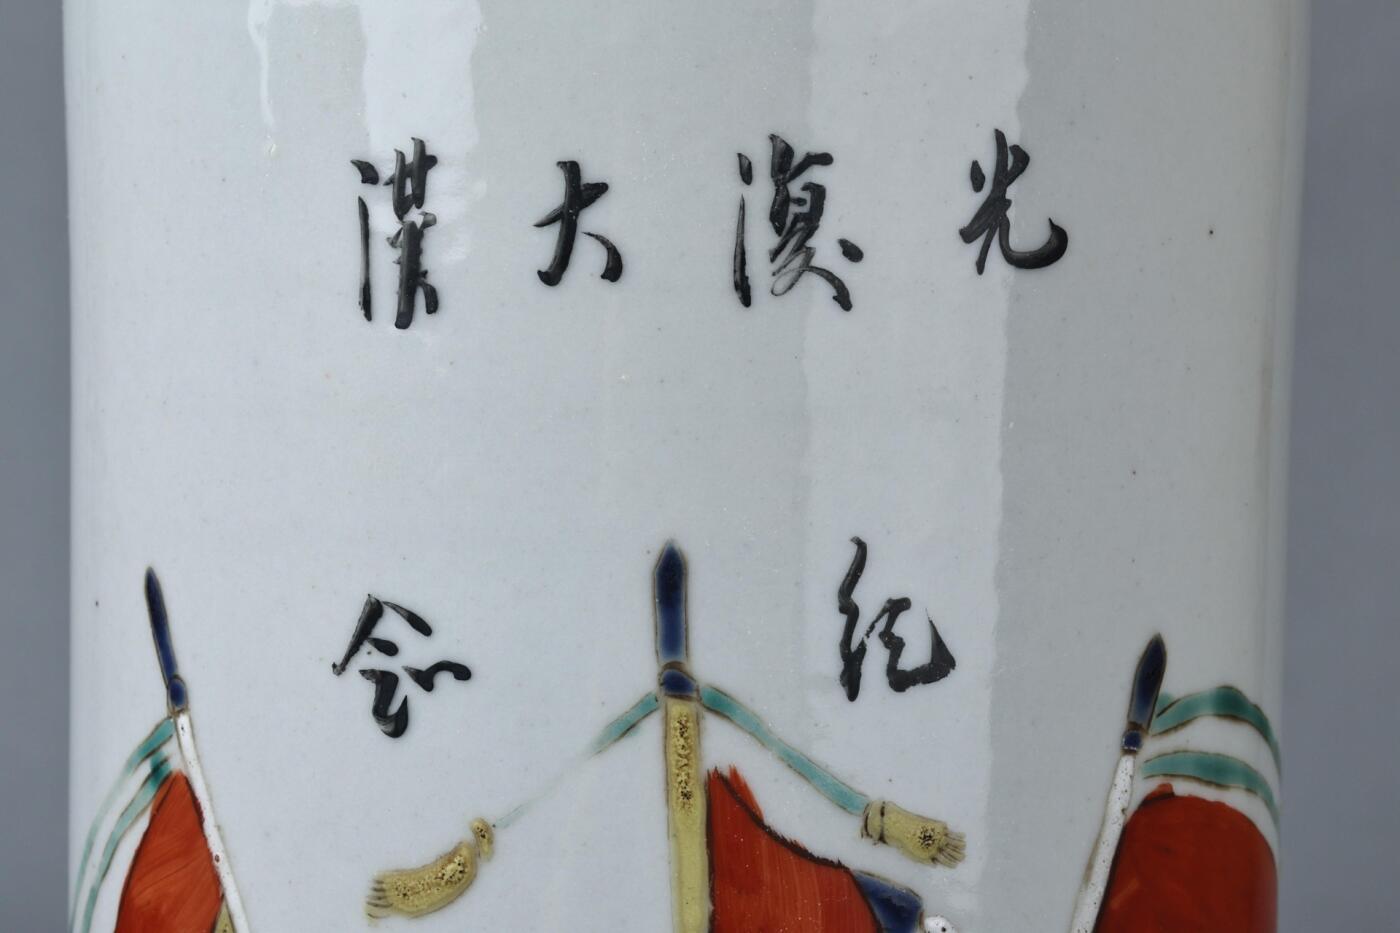 光復大漢
紀念